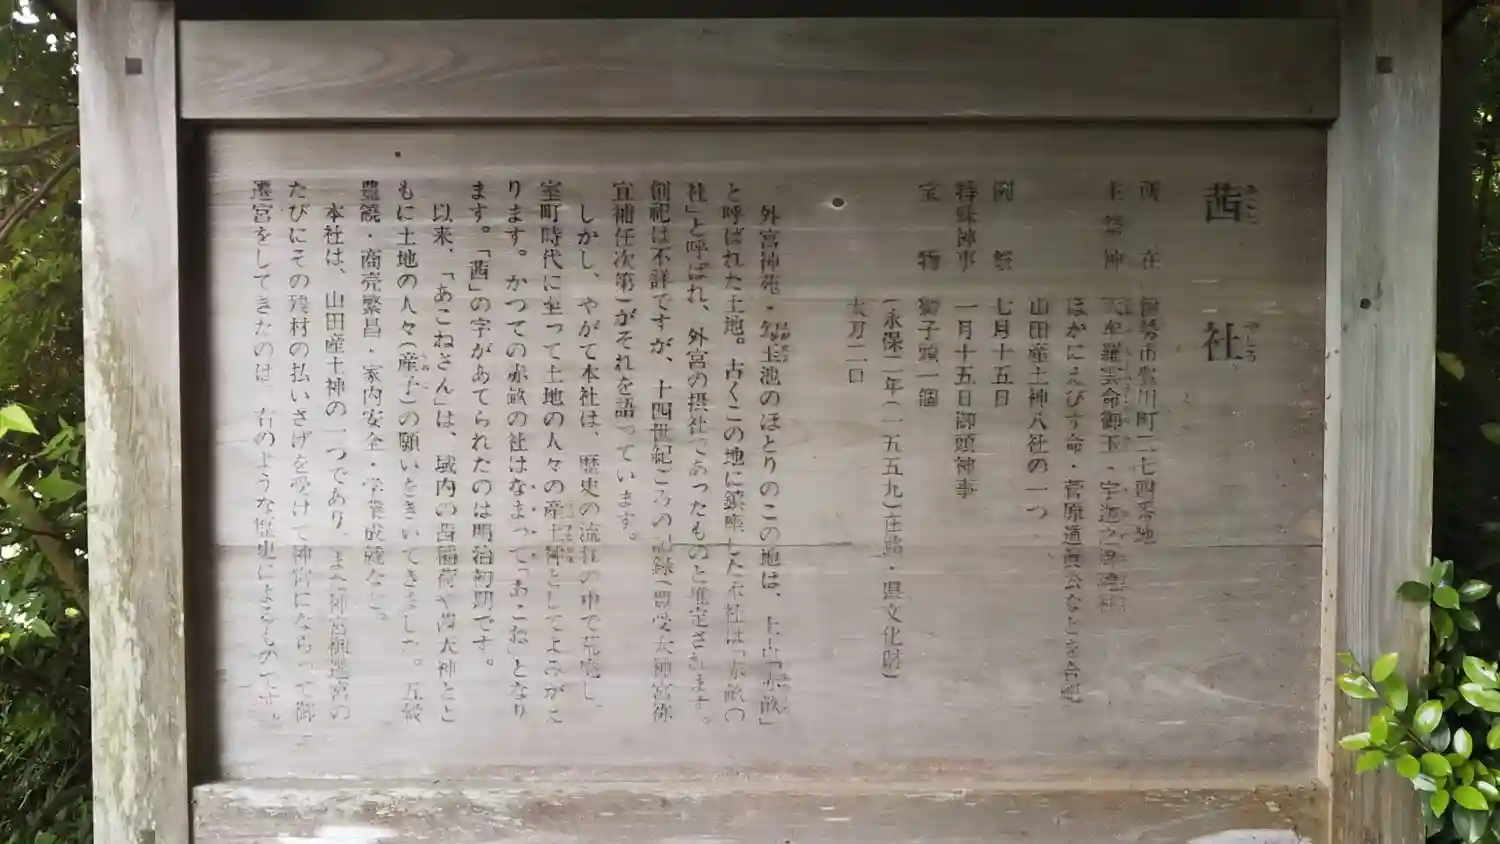 茜社
所在 伊勢市豊川町二七四番地
主祭神 天牟羅雲命御玉・宇迦之御魂神
ほかにえびす命・菅原道真公などを合祀
山田産土神八社の一つ
例祭 七月十五日
特殊神事 一月十五日御頭神事
宝物 獅子頭一個
(永保二年(一五五九)在銘・県文化財)
太刀二口
外宮神苑・勾玉池のほとりのこの地は、上古「赤畝」
と呼ばれた土地。古くこの地に鎮座した本社は「赤畝の
社」と呼ばれ、外宮の摂社であったものと推定されます。
創祀は不詳ですが、十四世紀ごろの記録(豊受太神宮祢
宜補任次第)がそれを語っています。
しかし、やがて本社は、歴史の流れの中で荒廃し、
室町時代に至って土地の人々の産土神としてよみがえ
ります。かつての赤畝の社はなまって「あこね」となり
ます。「茜」の字があてられたのは明治初期です。
以来、「あこねさん」は、域内の茜稲荷や豊大神とと
もに土地の人々(産子)の願いをきいてきました。五穀
豊饒・商売繁昌・家内安全・学業成就など。
本社は、山田産土神の一つであり、また神宮御遷宮の
たびにその残材の払いさげを受けて神宮にならって御
遷宮をしてきたのは、右のような歴史によるものです。